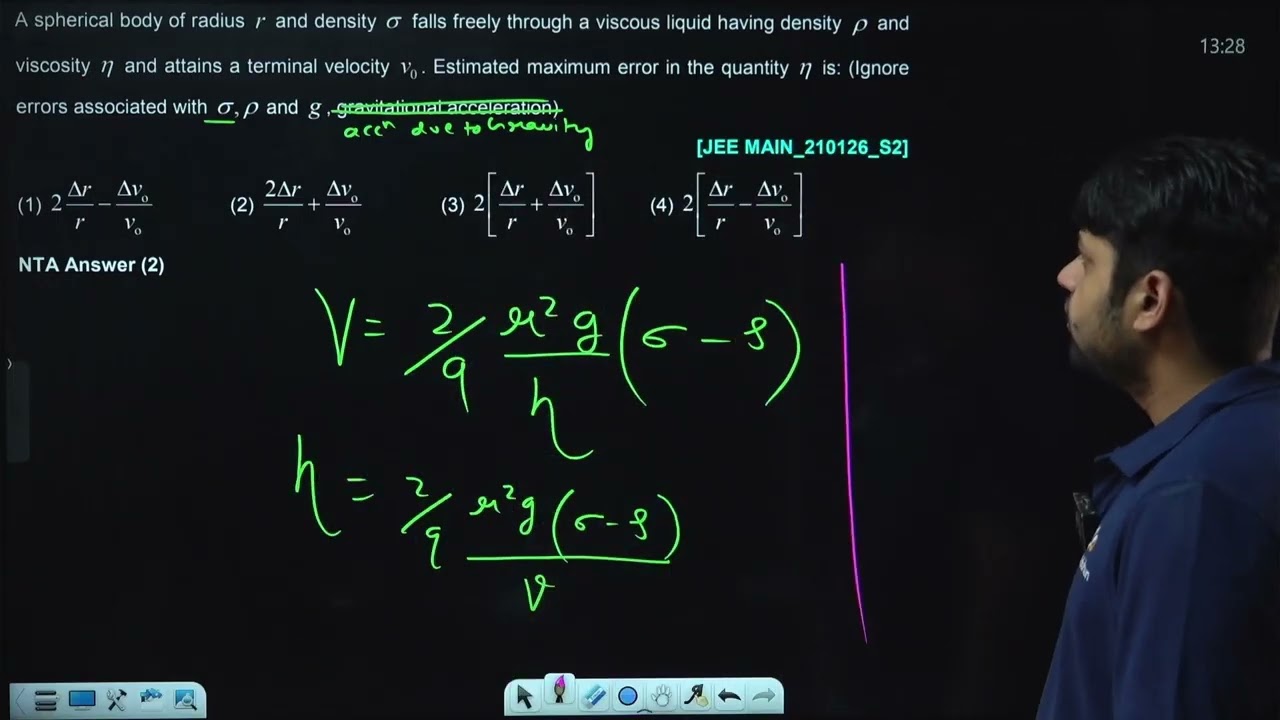 A spherical body of radius r and density σ falls freely through a viscous liquid having density ρ and
13:28
viscosity η and attains a terminal velocity v₀. Estimated maximum error in the quantity η is: (Ignore
errors associated with σ, ρ and g, gravitational acceleration)
accⁿ due to Gravity
[JEE MAIN_210126_S2]
(1) 2 Δr/r − Δv₀/v₀ (2) 2Δr/r + Δv₀/v₀ (3) 2[Δr/r + Δv₀/v₀] (4) 2[Δr/r − Δv₀/v₀]
NTA Answer (2)
V = 2/9 r²g/η (σ − ρ)
η = 2/9 r²g(σ − ρ)/v